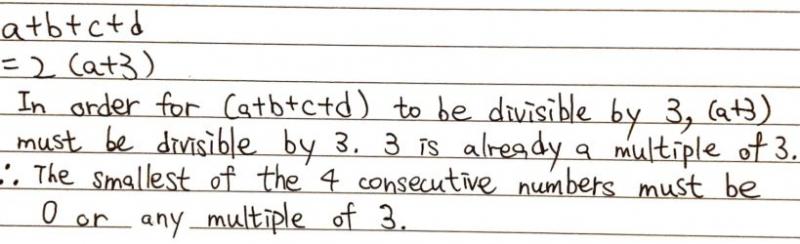 a+b+c+d
= 2 (a+3)
In order for (a+b+c+d) to be divisible by 3, (a+3)
must be divisible by 3. 3 is already a multiple of 3.
∴ The smallest of the 4 consecutive numbers must be
0 or any multiple of 3.